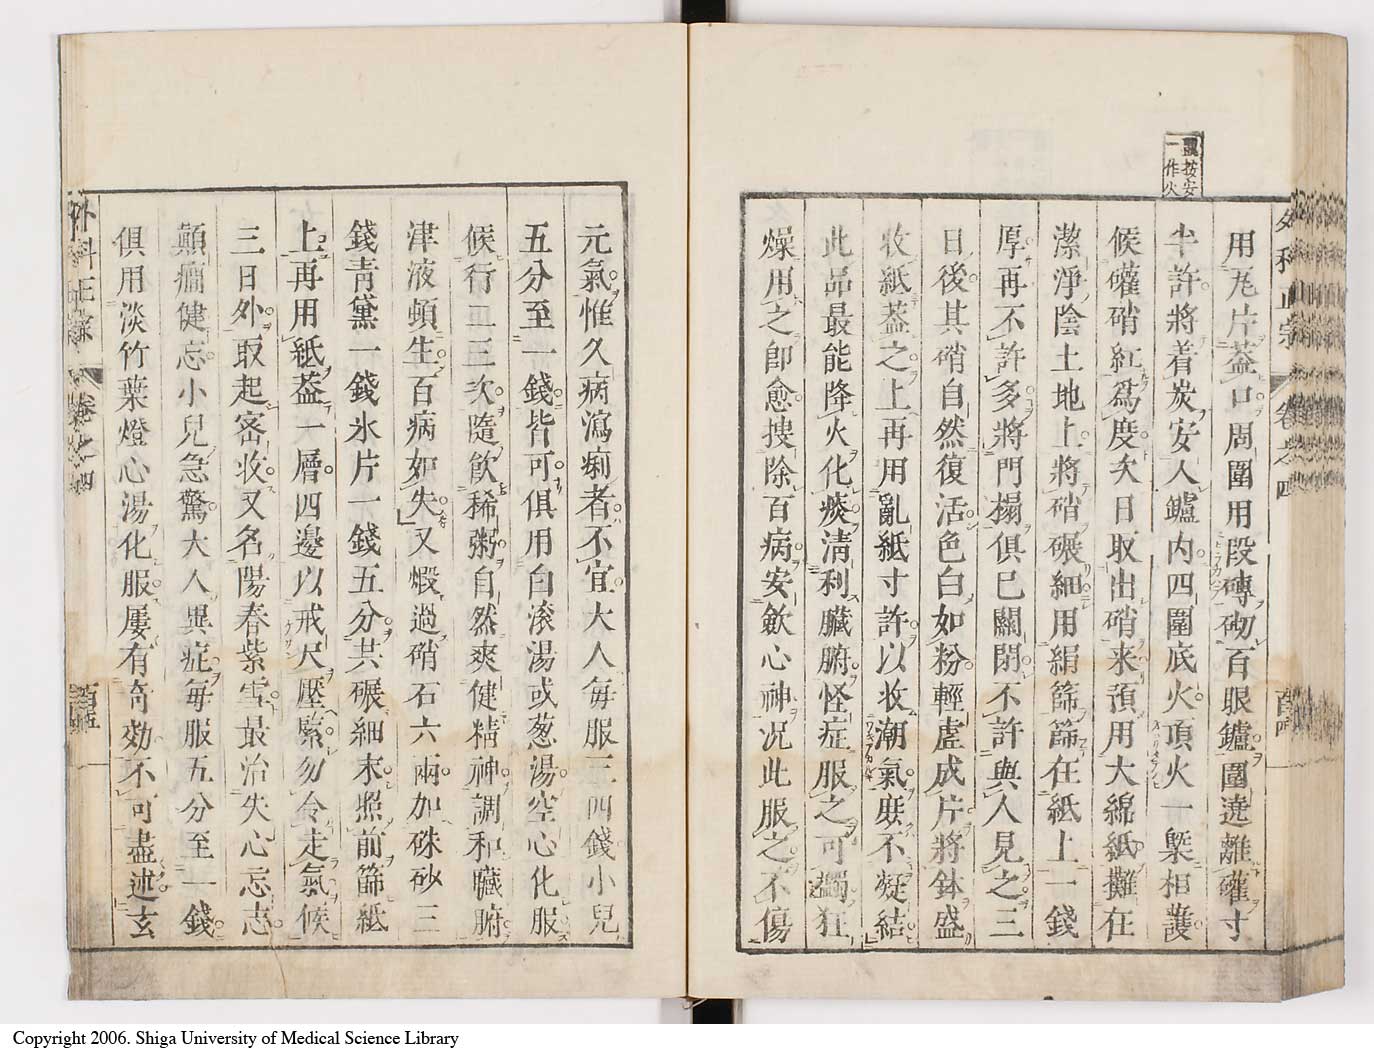 外科正宗
卷之四
百四
𤣥按安
一作火
用瓦片葢口周圍用段磚砌百眼鑪圍遶離礶寸
半許將着炭安入鑪内四圍底火頂火一槩相䕶
候礶硝紅爲度次日取出硝来預用大綿紙攤在
潔淨陰土地上將硝碾細用絹篩篩在紙上一錢
厚再不許多將門搨俱已關閉不許與人見之三
日後其硝自然復活色白如粉輕虚成片將鉢盛
收紙葢之上再用亂紙寸許以收潮氣庶不凝結
此昻最能降火化痰淸利臟腑怪症服之可蠲狂
燥用之卽愈搜除百病安歛心神况此服之不傷
元氣惟久病瀉痢者不宜大人每服三四錢小兒
五分至一錢皆可俱用白滚湯或葱湯空心化服
候行二三次隨飮稀粥自然爽健精神調和臟腑
津液頓生百病如失又煆過硝石六兩加硃砂三
錢靑黛一錢氷片一錢五分共碾細末照前篩紙
上再用紙葢一層四邊以戒尺壓緊勿令走氣候
三日外取起密收又名陽春紫雪最治失心忘志
顛癎健忘小兒急驚大人異症每服五分至一錢
俱用淡竹葉燈心湯化服屢有奇効不可盡述玄
外科正宗
卷之四
百五
Copyright 2006. Shiga University of Medical Science Library